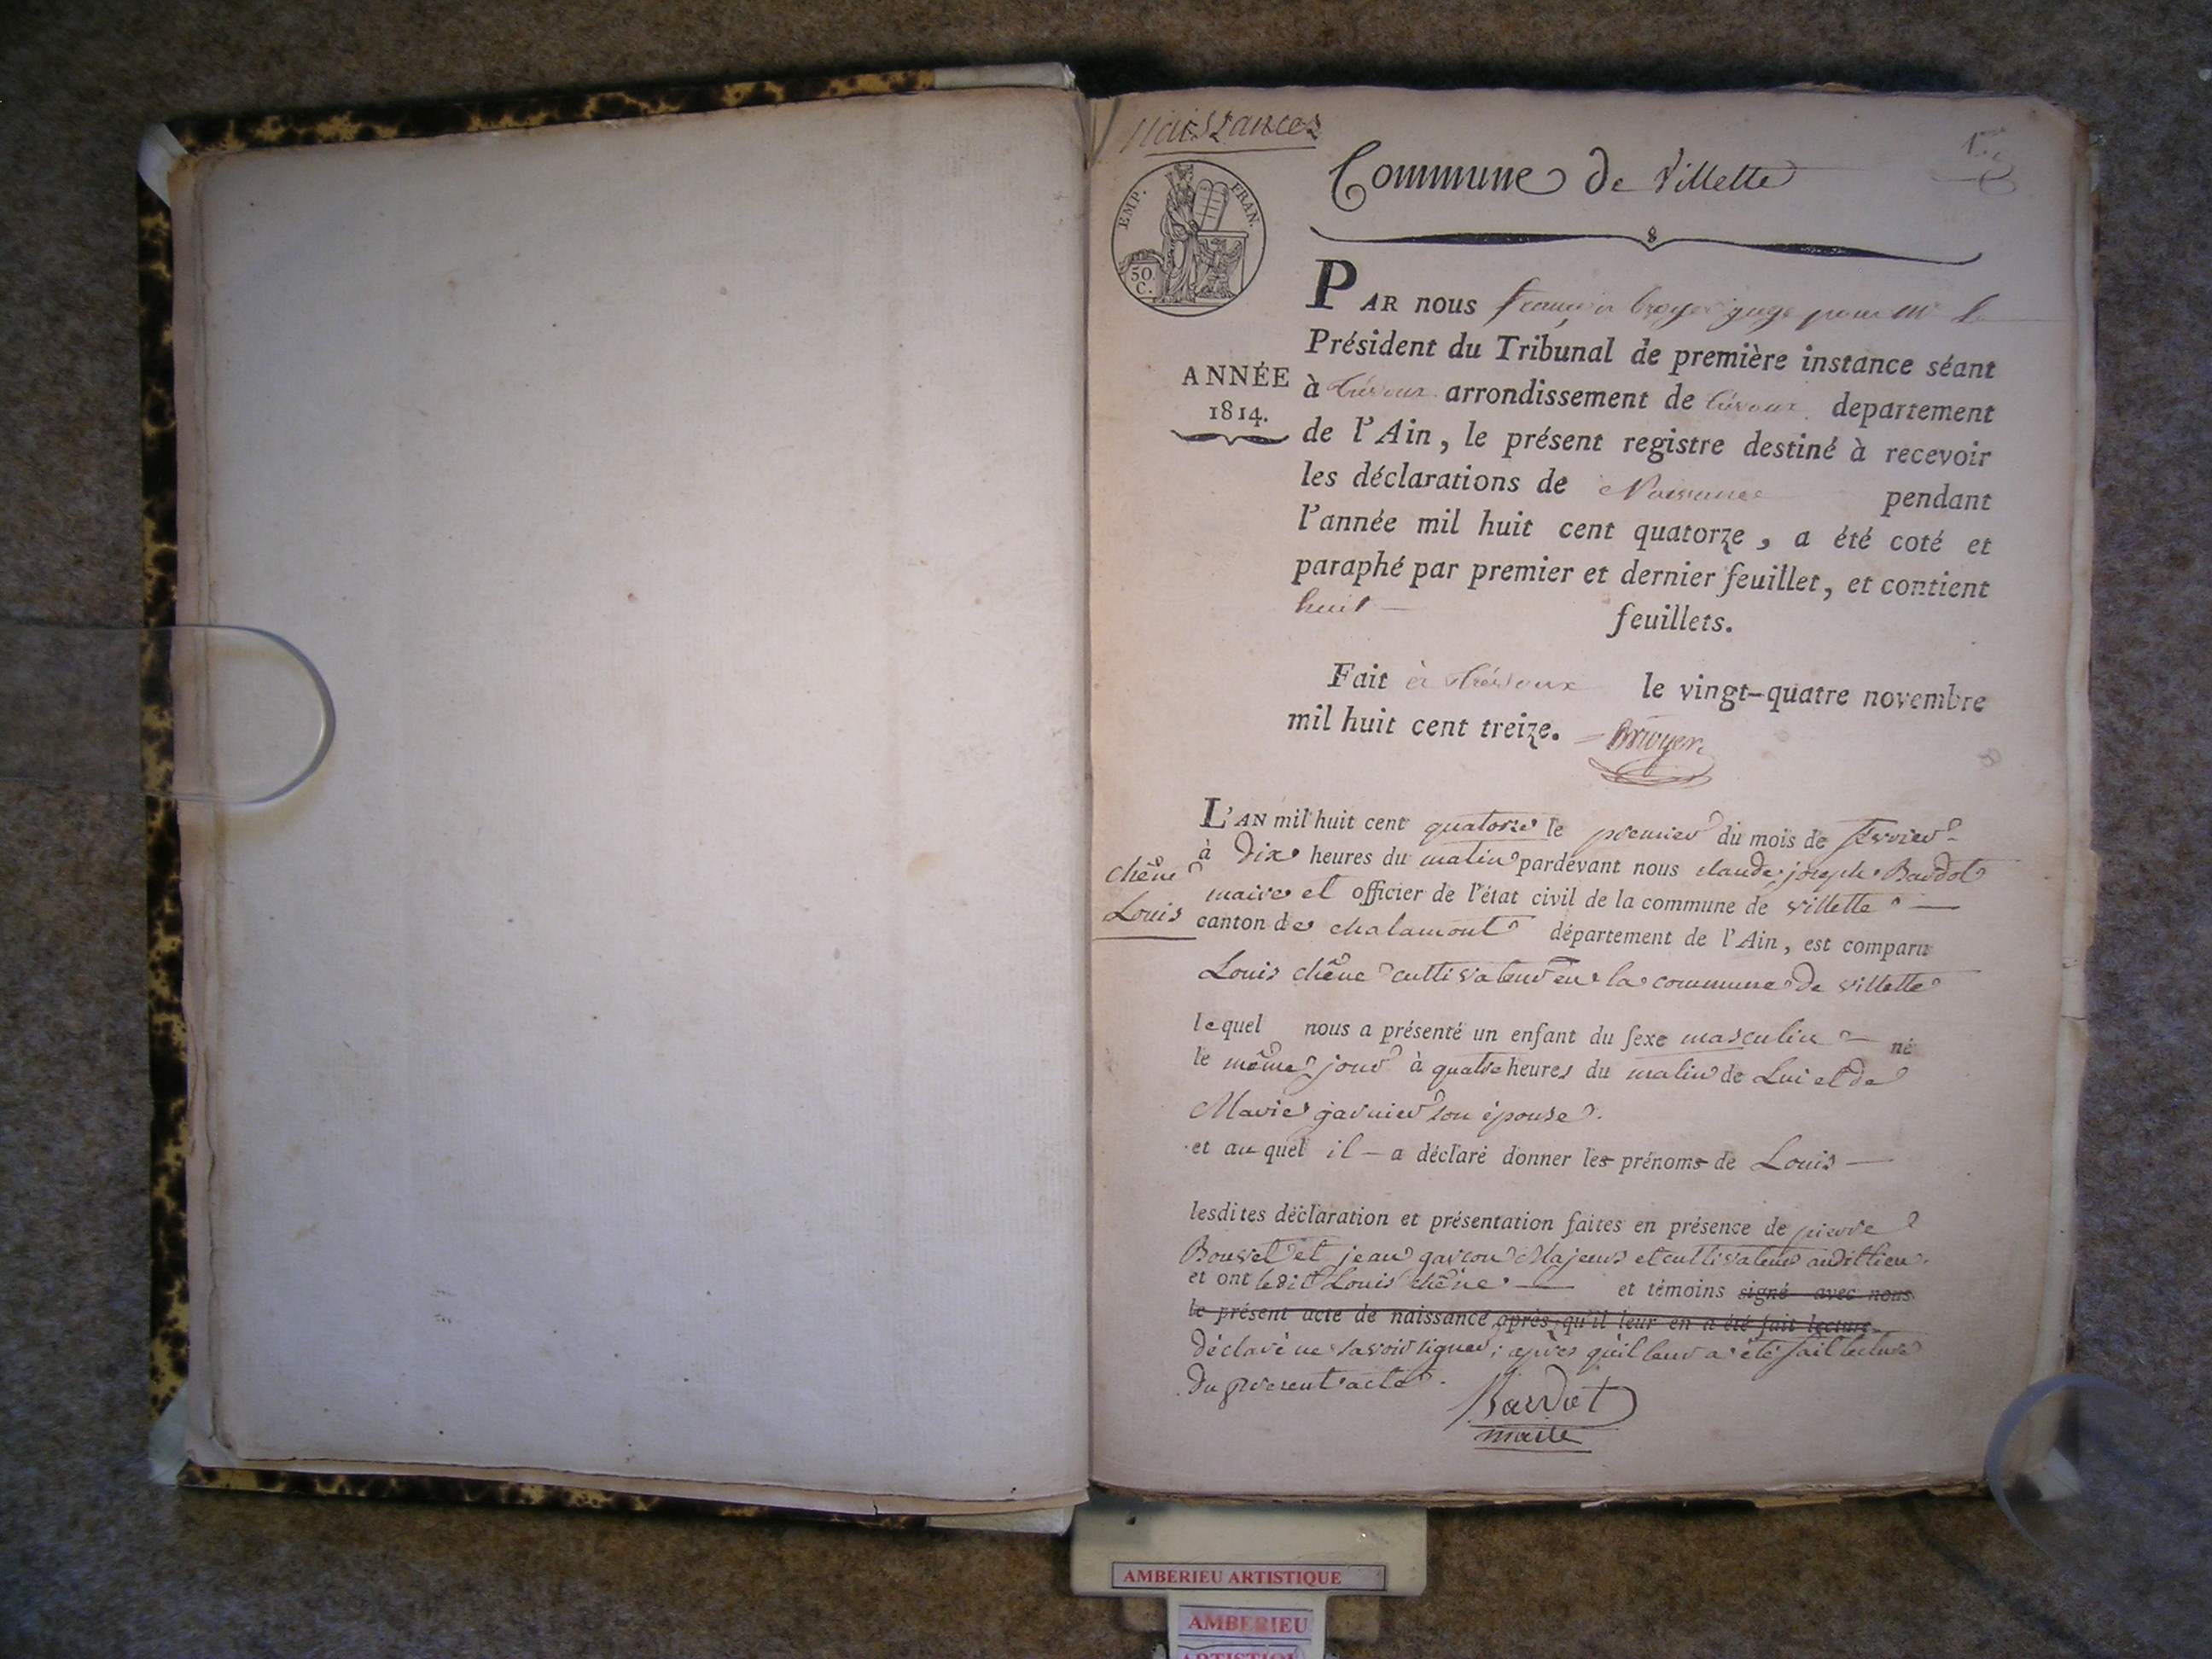 Naissances
EMP. FRAN.
50.
C.
Commune de Villette
1er
PAR nous françois broyer juge pour Mr le
Président du Tribunal de première instance séant
ANNÉE
1814.
à trévoux arrondissement de trévoux departement
de l'Ain, le présent registre destiné à recevoir
les déclarations de Naissance pendant
l'année mil huit cent quatorze, a été coté et
paraphé par premier et dernier feuillet, et contient
huit feuillets.
Fait à trévoux le vingt-quatre novembre
mil huit cent treize. Broyer
L'AN mil huit cent quatorze le premier du mois de fevrier
à dix heures du matin pardevant nous claude joseph Bardot
chêne
Louis
maire et officier de l'état civil de la commune de villette
canton de chalamont département de l'Ain, est comparu
Louis chêne cultivateur en la commune de villette
lequel nous a présenté un enfant du sexe masculin né
le même jour à quatre heures du matin de Lui et de
Marie garnier son épouse.
et au quel il a déclaré donner les prénoms de Louis
lesdites déclaration et présentation faites en présence de pierre
Bouvet et jean garçon Majeurs et cultivateurs audit lieu.
et ont ledit Louis chêne et témoins signé avec nous
le présent acte de naissance après qu'il leur en a été fait lecture
déclaré ne savoir signer; après qu'il leur a été fait lecture
du present acte.
Bardot
maire
AMBERIEU ARTISTIQUE
AMBERIEU
ARTISTIQU